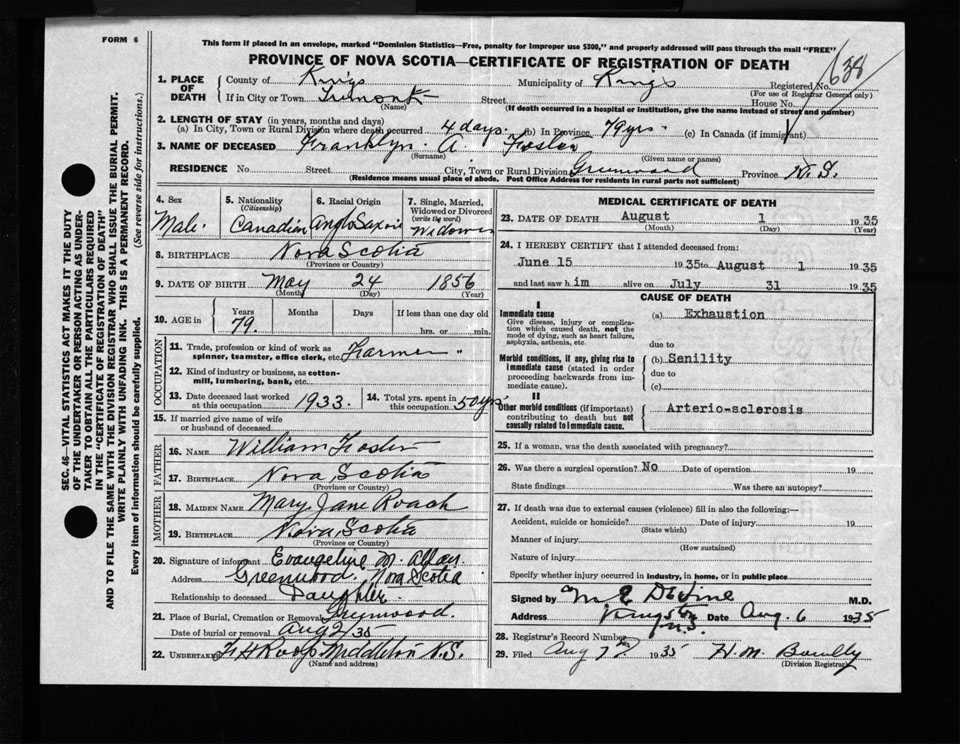 FORM 6
This form if placed in an envelope, marked "Dominion Statistics—Free, penalty for improper use $300," and properly addressed will pass through the mail "FREE"
PROVINCE OF NOVA SCOTIA—CERTIFICATE OF REGISTRATION OF DEATH
638
1. PLACE OF DEATH
County of Kings Municipality of Kings Registered No.
(For use of Registrar General only)
If in City or Town Tremont Street House No.
(Name) (If death occurred in a hospital or institution, give the name instead of street and number)
2. LENGTH OF STAY (in years, months and days)
(a) In City, Town or Rural Division where death occurred 4 days (b) In Province 79 yrs. (c) In Canada (if immigrant)
3. NAME OF DECEASED Franklyn. A. Foster
(Surname) (Given name or names)
RESIDENCE No. Street City, Town or Rural Division Greenwood Province N.S.
(Residence means usual place of abode. Post Office Address for residents in rural parts not sufficient)
4. Sex Male.
5. Nationality (Citizenship) Canadian
6. Racial Origin Anglo Saxon
7. Single, Married, Widowed or Divorced (write the word) Widower
8. BIRTHPLACE Nova Scotia
(Province or Country)
9. DATE OF BIRTH May 24 1856
(Month) (Day) (Year)
10. AGE in Years Months Days If less than one day old
79. hrs. or min.
OCCUPATION
11. Trade, profession or kind of work as spinner, teamster, office clerk, etc. Farmer "
12. Kind of industry or business, as cotton-mill, lumbering, bank, etc.
13. Date deceased last worked at this occupation 1933. 14. Total yrs. spent in this occupation 50 yrs
15. If married give name of wife or husband of deceased
FATHER
16. NAME William Foster
17. BIRTHPLACE Nova Scotia
(Province or Country)
MOTHER
18. MAIDEN NAME Mary Jane Roach
19. BIRTHPLACE Nova Scotia
(Province or Country)
20. Signature of informant Evangeline M.
Address Greenwood. Nova Scotia
Relationship to deceased Daughter.
21. Place of Burial, Cremation or Removal Greenwood.
Date of burial or removal Aug 2/35
22. UNDERTAKER Middleton N.S.
(Name and address)
MEDICAL CERTIFICATE OF DEATH
23. DATE OF DEATH August 1 1935
(Month) (Day) (Year)
24. I HEREBY CERTIFY that I attended deceased from:
June 15 1935 to August 1 1935
and last saw him alive on July 31 1935
CAUSE OF DEATH
I
Immediate cause (a) Exhaustion
Give disease, injury or complication which caused death, not the mode of dying, such as heart failure, asphyxia, asthenia, etc.
due to
Morbid conditions, if any, giving rise to immediate cause (stated in order proceeding backwards from immediate cause).
(b) Senility
due to
(c)
II
Other morbid conditions (if important) contributing to death but not causally related to immediate cause.
Arterio-sclerosis
25. If a woman, was the death associated with pregnancy?
26. Was there a surgical operation? No Date of operation 19
State findings Was there an autopsy?
27. If death was due to external causes (violence) fill in also the following:—
Accident, suicide or homicide? Date of injury 19
(State which)
Manner of injury
(How sustained)
Nature of injury
Specify whether injury occurred in industry, in home, or in public place
Signed by M E Devine M.D.
Address Kingston N.S. Date Aug. 6 1935
28. Registrar's Record Number
29. Filed Aug 7th 1935 H. M.
(Division Registrar)
SEC. 46—VITAL STATISTICS ACT MAKES IT THE DUTY
OF THE UNDERTAKER OR PERSON ACTING AS UNDER-
TAKER TO OBTAIN ALL THE PARTICULARS REQUIRED
IN THE "CERTIFICATE OF REGISTRATION OF DEATH"
AND TO FILE THE SAME WITH THE DIVISION REGISTRAR WHO SHALL ISSUE THE BURIAL PERMIT.
WRITE PLAINLY WITH UNFADING INK. THIS IS A PERMANENT RECORD.
Every item of information should be carefully supplied. (See reverse side for instructions.)